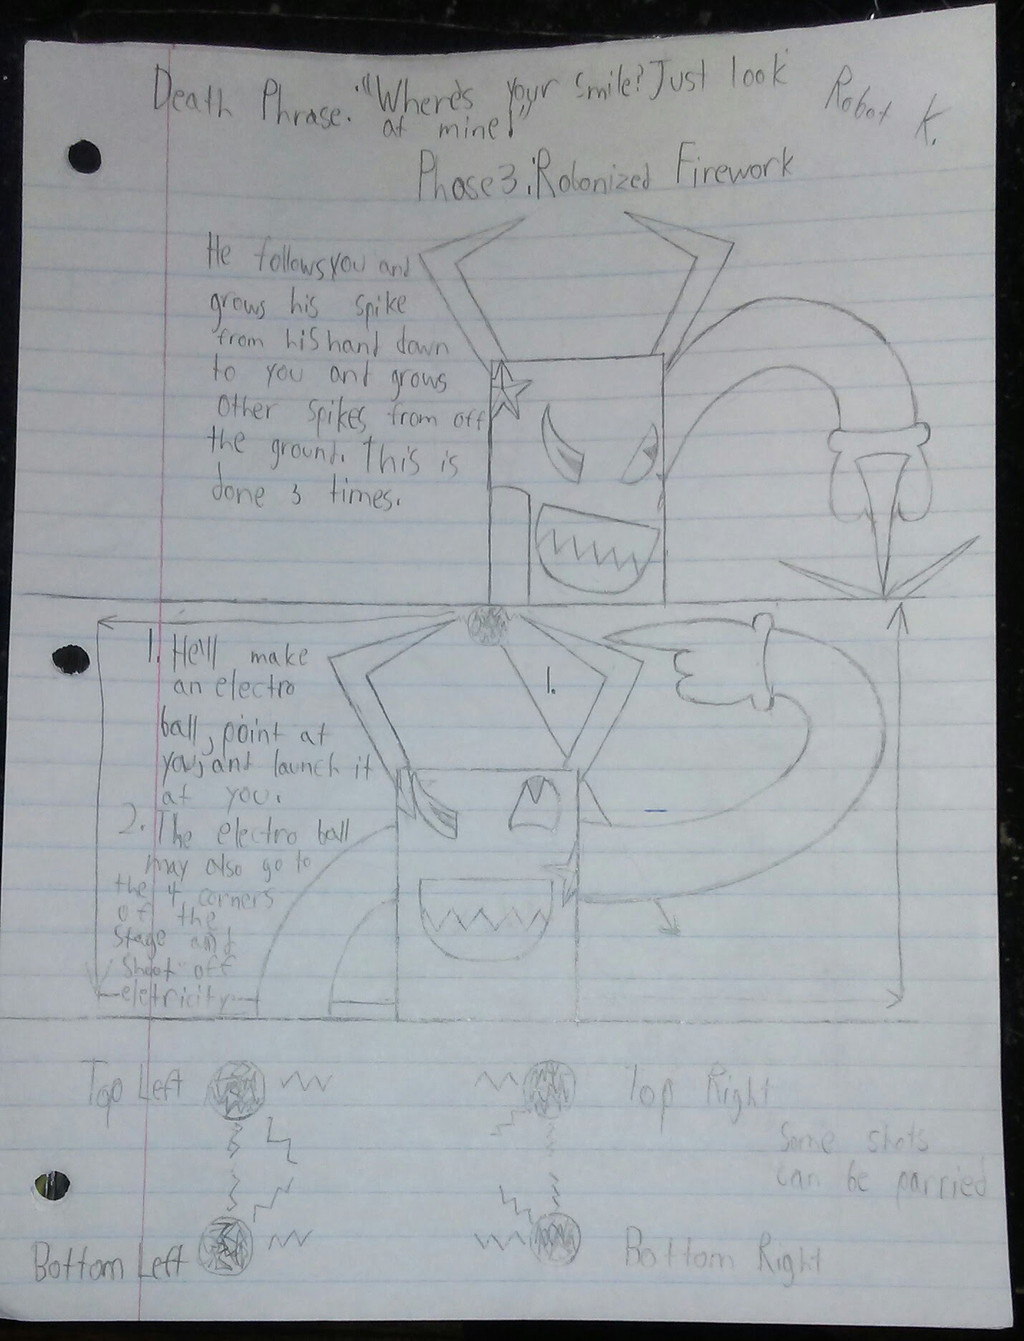 Death Phrase: "Where's your smile? Just look
at mine!"
Robot K.
Phase 3: Robonized Firework
He follows you and
grows his spike
from his hand down
to you and grows
other spikes from off
the ground. This is
done 3 times.
1. He'll make
an electro
ball, point at
you, and launch it
at you.
2. The electro ball
may also go to
the 4 corners
of the
stage and
shoot off
eletricity
1.
Top Left
Top Right
Some shots
can be parried
Bottom Left
Bottom Right